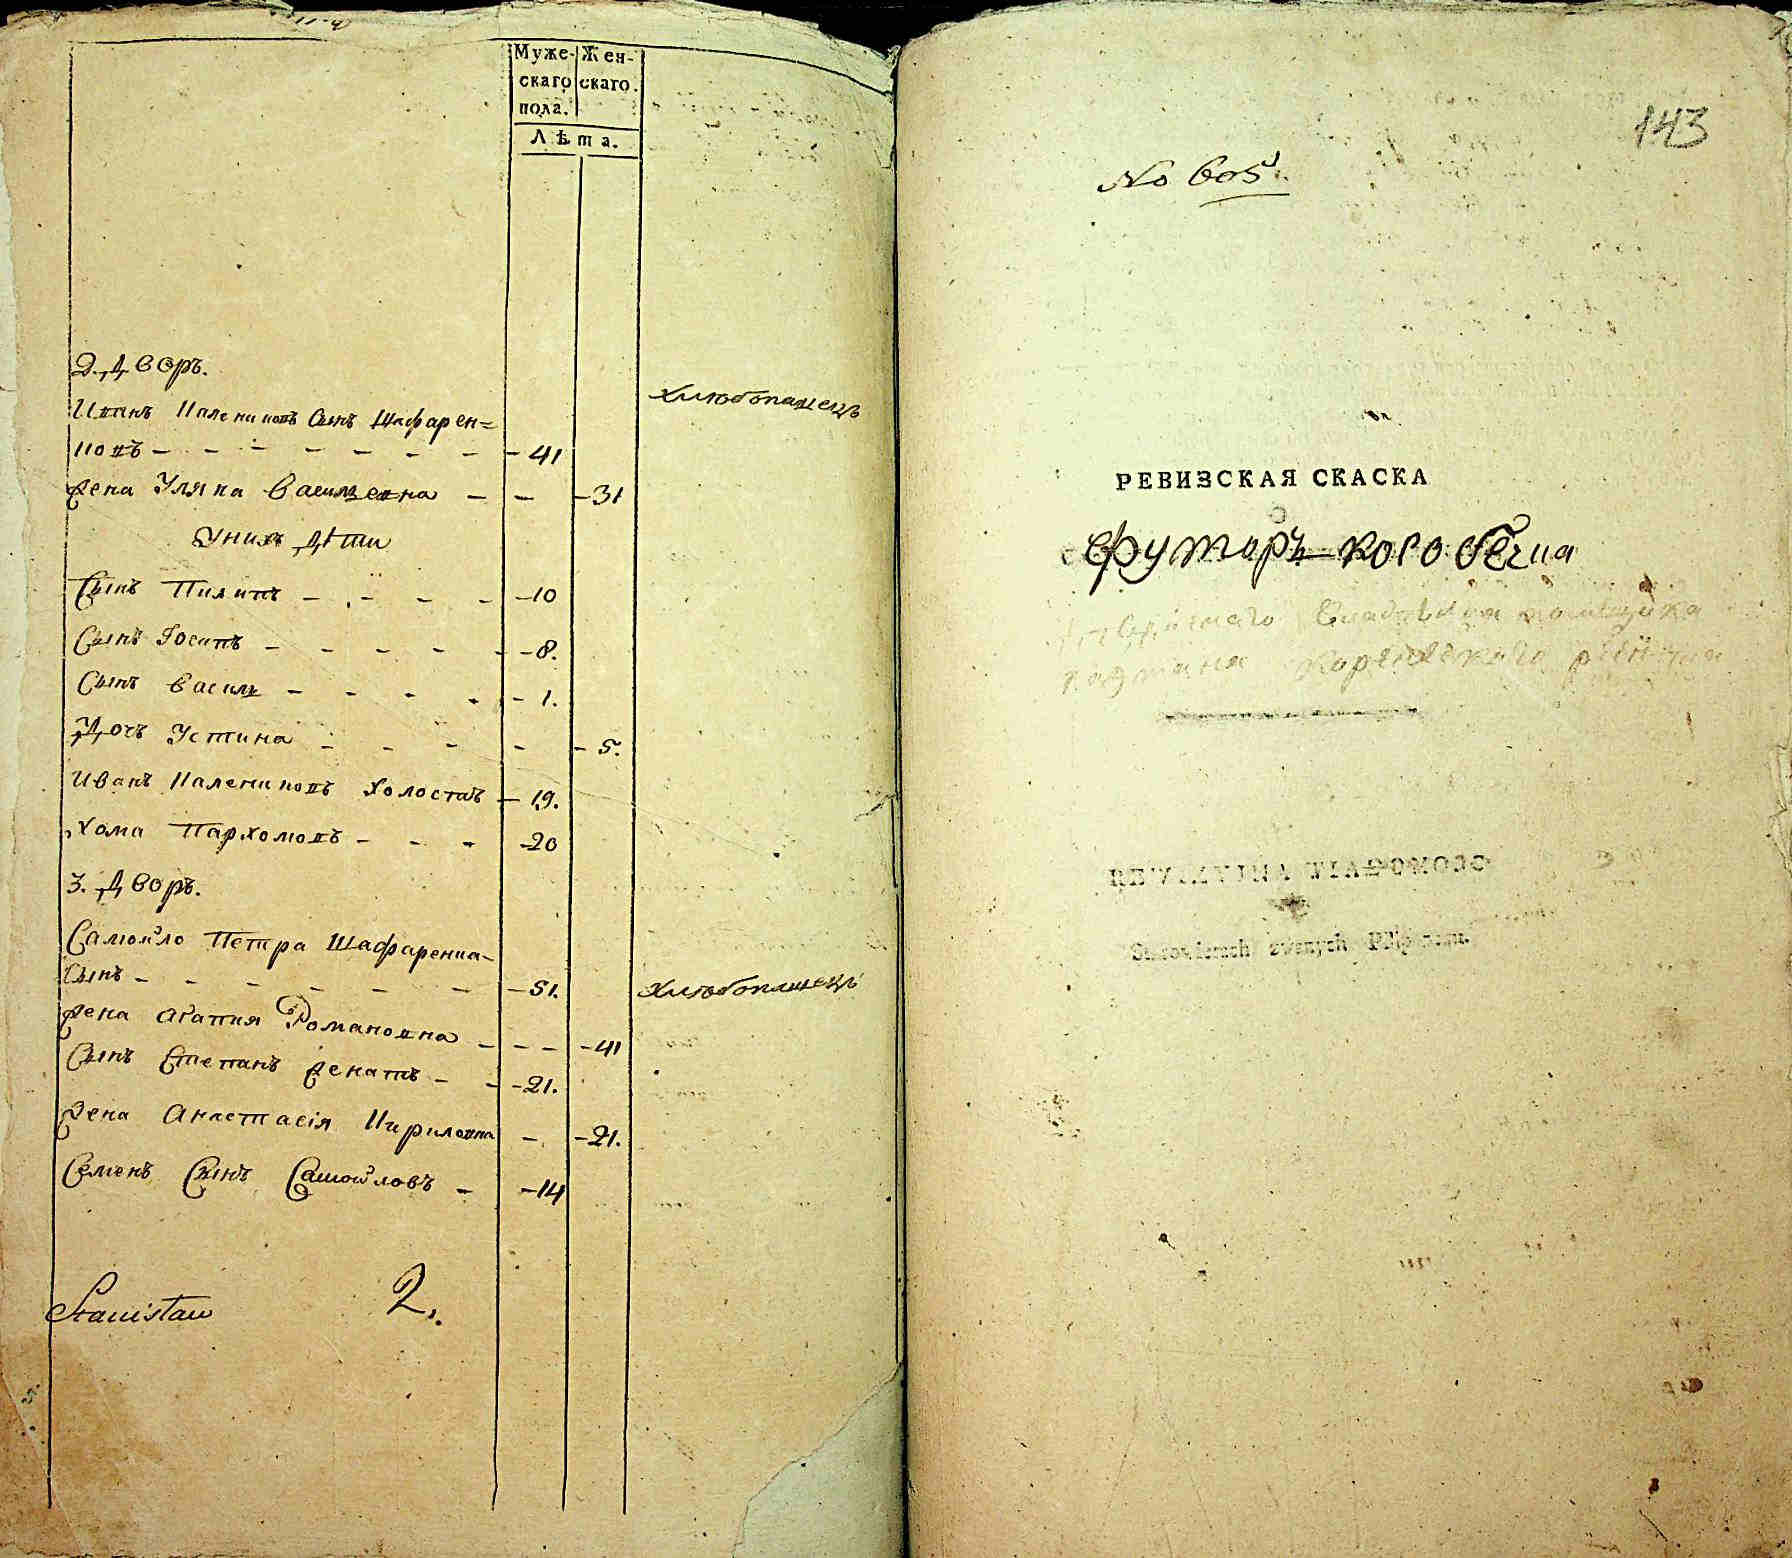 Муже-
скаго
пола.
Жен-
скаго.
Лѣта.
2. Дворъ.
Иванъ Калениковъ Сынъ Шафарен=
ковъ — 41
хлѣбопашецъ
Жена Уляна Василевна — 31
Унихъ Дѣти
Сынъ Пилипъ — 10
Сынъ Іосипъ — 8.
Сынъ Василь — 1.
Дочъ Устина — 5.
Иванъ Калениковъ Холостъ — 19.
Хома Пархомовъ — 20
3. Дворъ.
Самойло Петра Шафаренка
Сынъ — 51.
хлѣбопашецъ
Жена Агапия Романовна — 41
Сынъ Степанъ Женатъ — 21.
Жена Анастасія Кириловна — 21.
Семенъ Сынъ Самойловъ — 14
Stanisław 2.
143
No 605.
РЕВИЗСКАЯ СКАСКА
футоръ
помѣщика
REWIZYINA WIADOMOSC